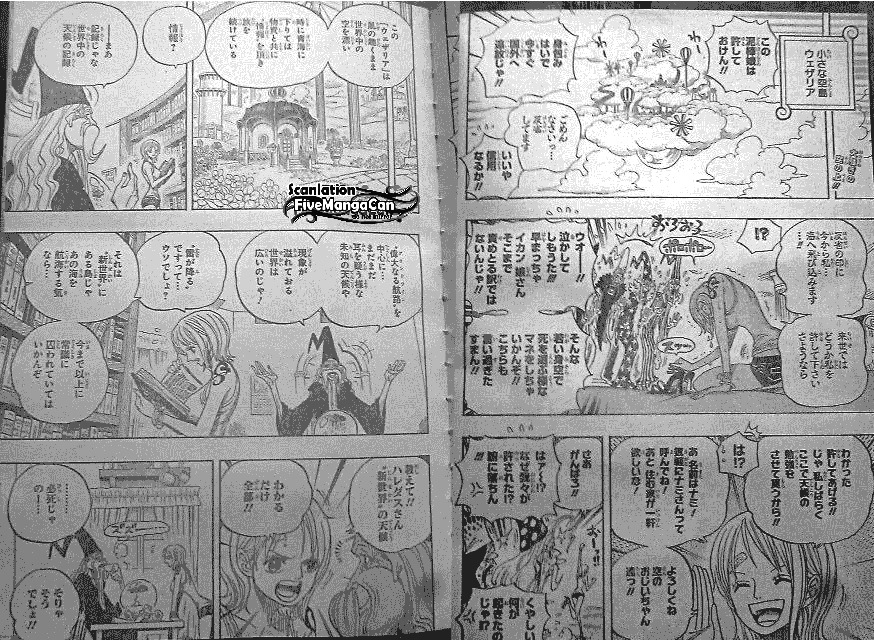 小さな空島
ウェザリア
この
泥棒娘は
許して
おけん!!
身包み
はいで
今すぐ
国外へ
追放じゃ!!
ごめん
なさいっ…
反省
してます
いいや
信用
なるか!!
反省の印に
今から私…
海へ飛び込みます
…!!
来世では
どうか私を
許して下さい
さようなら
!?
おろおろ
ウオーーー!!
泣かして
しもうた!!!
早まっちゃ
イカン 娘さん
そこまで
責めとる訳では
ないんじゃ!!
そんな
若い身空で
死を選ぶ様な
マネをしちゃ
いかんぞ!!
こちらも
言い過ぎた
すまん!!
わかった
許してあげる!!
じゃ 私しばらく
ここで天候の
勉強を
させて貰うから!!
は!?
あ 名前はナミ!
気軽にナミさんって
呼んでね!
あと 住む家が一軒
欲しいな!
よろしくね
空の
おじいちゃん
達っ!!
さあ
がんばろ!!
はァ〜!?
なぜ我々が
許された!?
腑に落ちん
!!!
くやしい!
何が
起きたの
じゃ!?
この
"ウェザリア"は
風の趣くまま
世界中の
空を漂い
時に青海に
下りては
物資と共に
"情報"を頂き
旅を
続けている
情報?
…まあ
記録じゃな
世界中の
天候の記録
"偉大なる航路"を
中心に…
まだまだ
耳を疑う様な
未知の天候や
現象が
溢れておる
世界は
広いのじゃ!
"雷が降る"
ですって…
ウソでしょ?
それは
"新世界"に
ある島じゃ
あの海を
航海する気
なら…
今まで以上に
常識に
囚われていては
いかんぞ
教えて!!
ハレダスさん
"新世界"の天候
わかる
だけ
全部!!
ズズ…
………
必死じゃ
のー…
そりゃ
そう
でしょ!!
Scanlation
FiveMangaCan